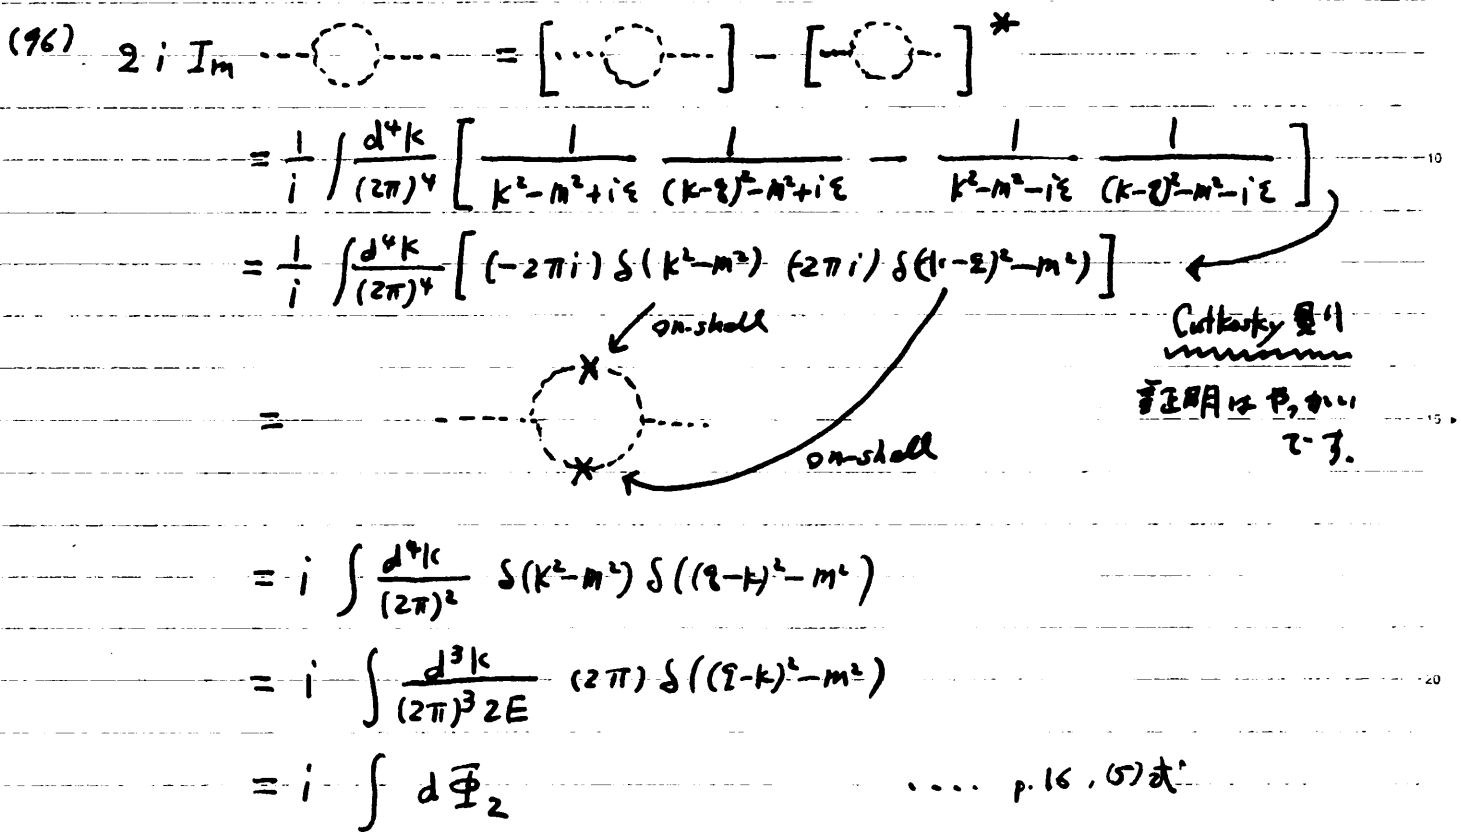 (96) 2 i Im = [ ] - [ ]*
= 1/i ∫ d⁴k/(2π)⁴ [ 1/(k²-m²+iε) 1/((k-q)²-m²+iε) - 1/(k²-m²-iε) 1/((k-q)²-m²-iε) ]
10
= 1/i ∫ d⁴k/(2π)⁴ [ (-2πi) δ(k²-m²) (-2πi) δ((k-q)²-m²) ]
on-shell
Cutkosky
=
証明はやっかい
15
です.
on-shell
= i ∫ d⁴k/(2π)² δ(k²-m²) δ((q-k)²-m²)
= i ∫ d³k/((2π)³ 2E) (2π) δ((q-k)²-m²)
20
= i ∫ dΦ₂ .... p.16, (5)式